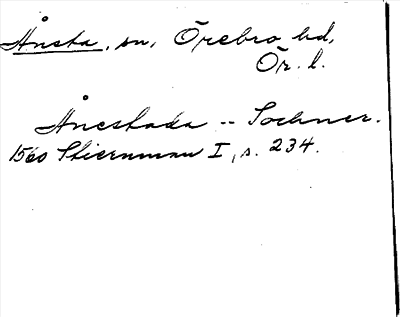 Ånsta, sn, Örebro hd,
Ör. l.
Åncstada -- Sochner.
1560 Stiernman I, s. 234.